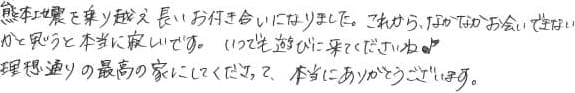 熊本地震を乗り越え長いお付き合いになりました。これから、なかなかお会いできない
かと思うと本当に寂しいです。いつでも遊びに来てくださいね♪
理想通りの最高の家にしてくださって、本当にありがとうございます。